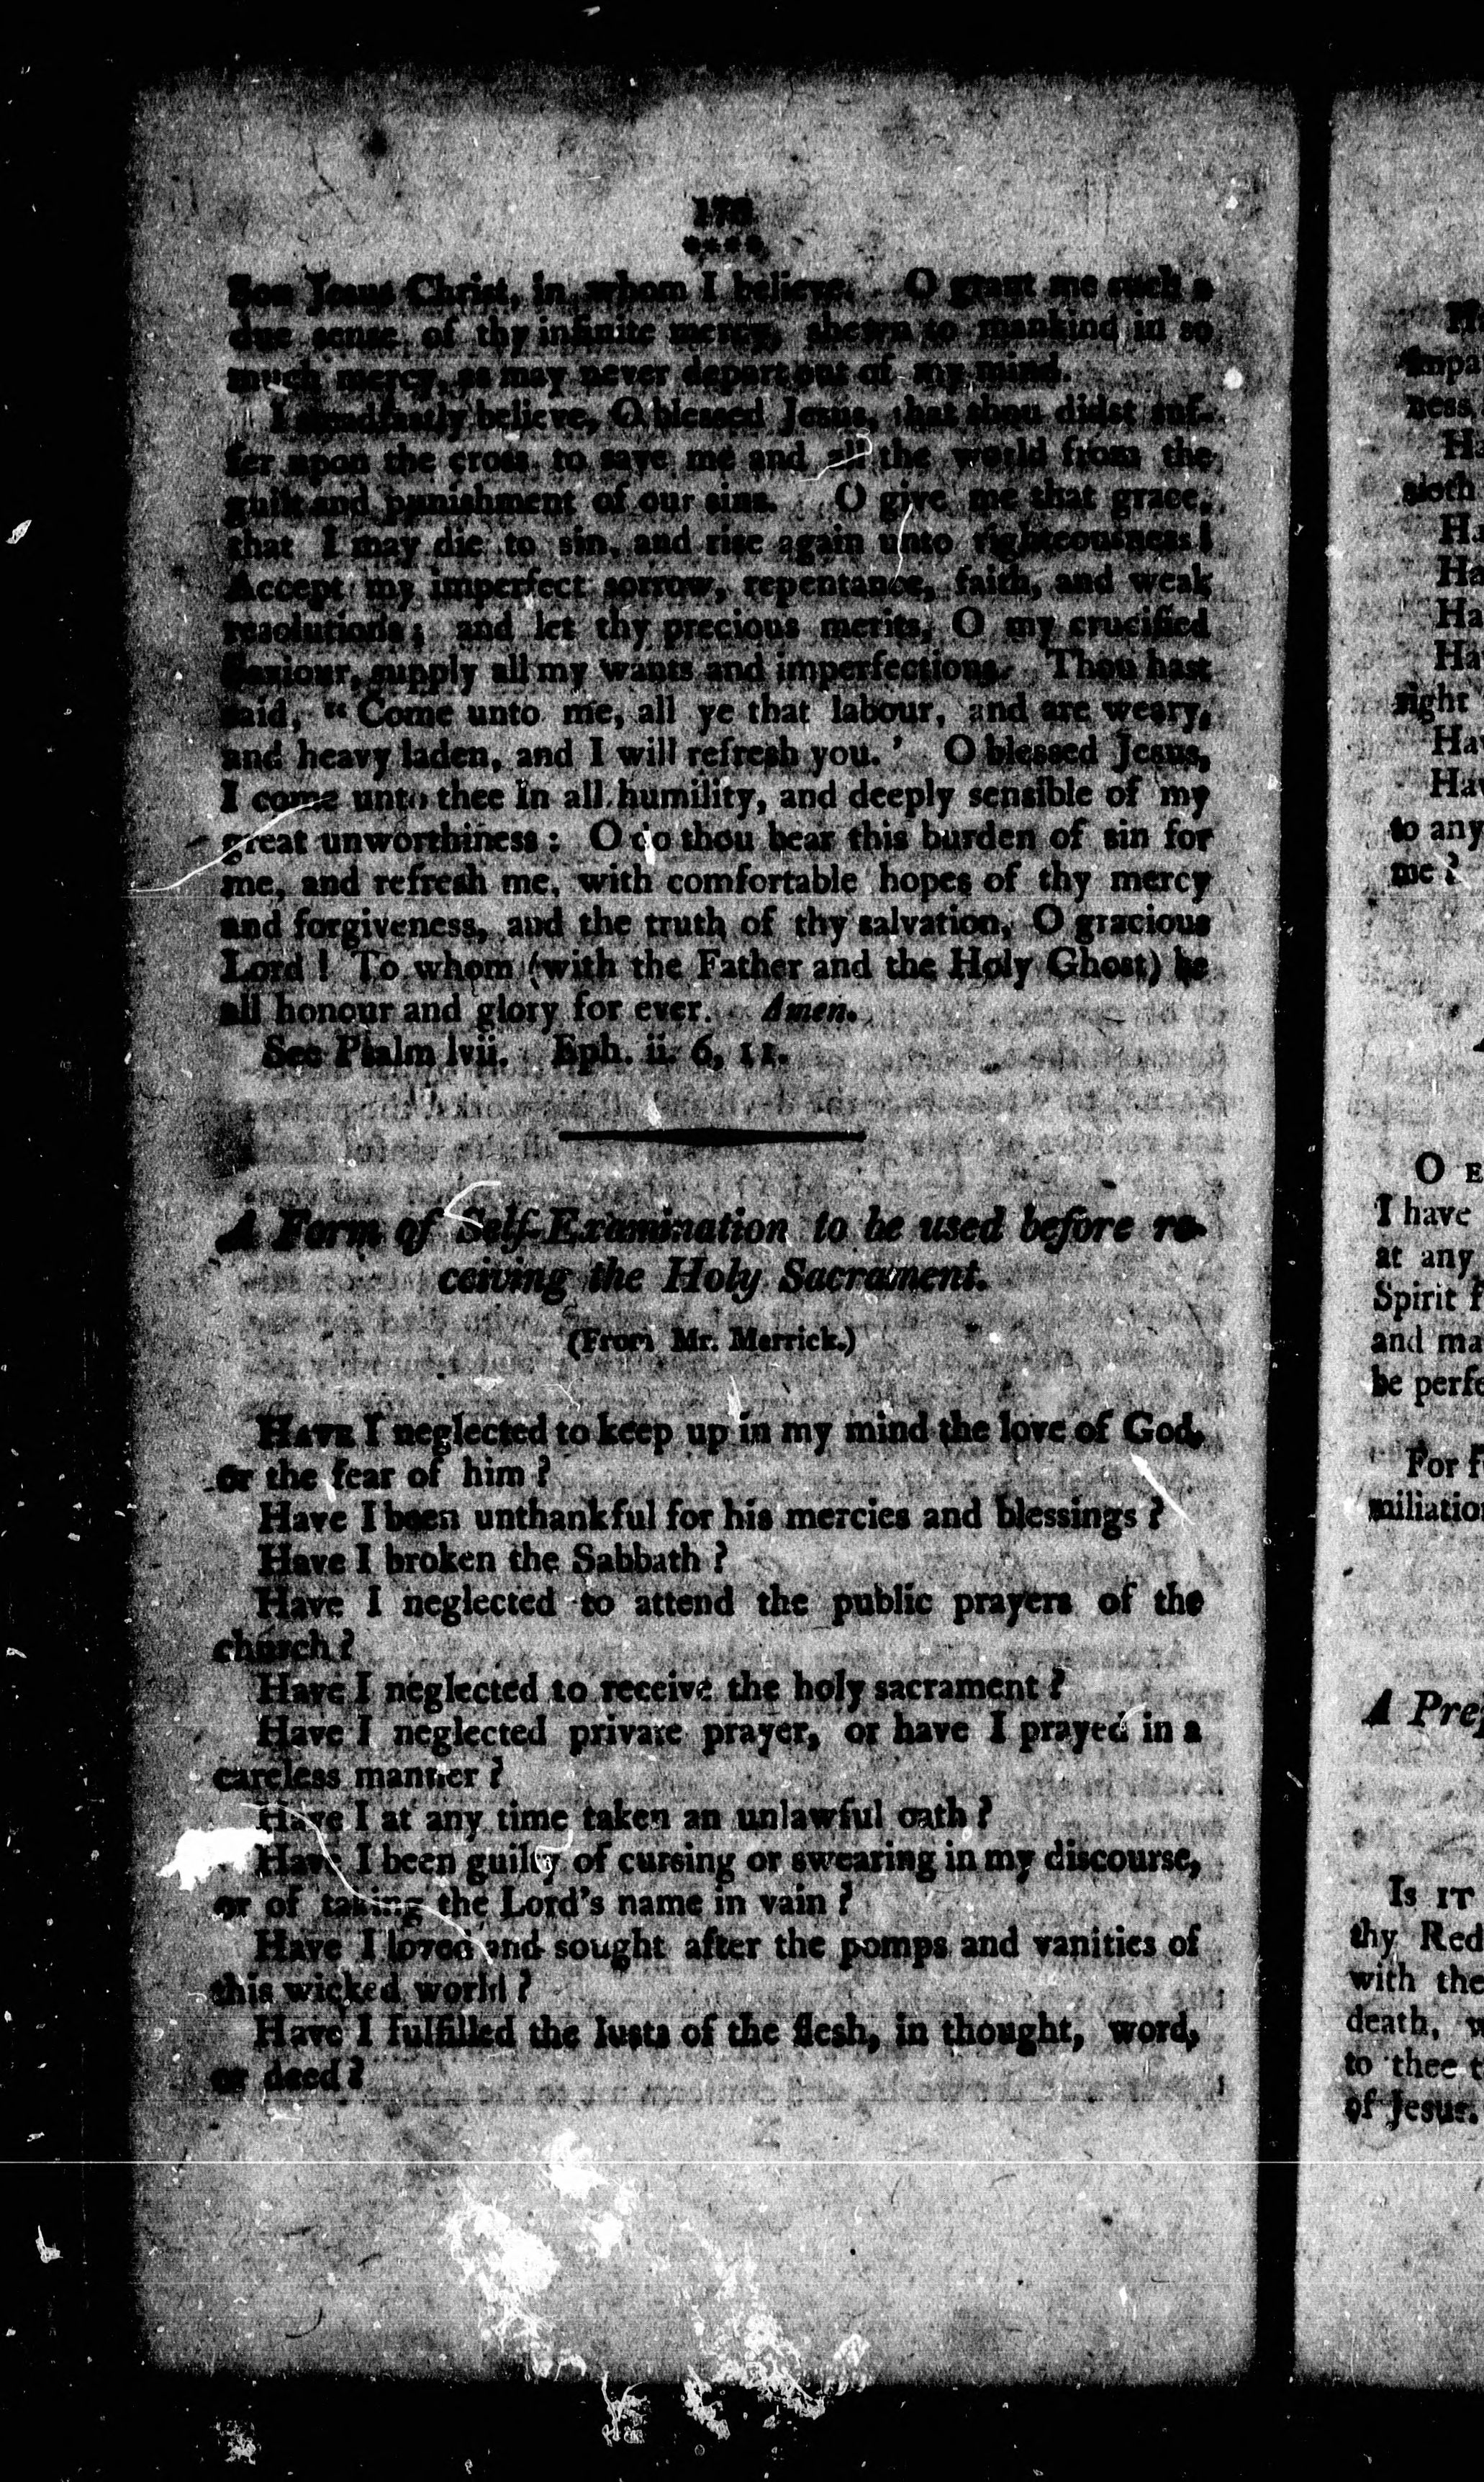 176
****
Son Jesus Christ, in whom I believe. O grant me such a
due sense of thy infinite mercy, shewn to mankind in so
much mercy, as may never depart out of my mind.
I steadfastly believe, O blessed Jesus, that thou didst suf-
fer upon the cross to save me and all the world from the
guilt and punishment of our sins. O give me that grace,
that I may die to sin, and rise again unto righteousness!
Accept my imperfect sorrow, repentance, faith, and weak
resolutions; and let thy precious merits, O my crucified
Saviour, supply all my wants and imperfections. Thou hast
said, “ Come unto me, all ye that labour, and are weary,
and heavy laden, and I will refresh you.’ O blessed Jesus,
I come unto thee in all humility, and deeply sensible of my
great unworthiness: O do thou bear this burden of sin for
me, and refresh me, with comfortable hopes of thy mercy
and forgiveness, and the truth of thy salvation, O gracious
Lord! To whom (with the Father and the Holy Ghost) be
all honour and glory for ever. Amen.
See Psalm lvii. Eph. ii. 6, 11.
A Form of Self-Examination to be used before re-
ceiving the Holy Sacrament.
(From Mr. Merrick.)
HAVE I neglected to keep up in my mind the love of God,
or the fear of him?
Have I been unthankful for his mercies and blessings?
Have I broken the Sabbath?
Have I neglected to attend the public prayers of the
church?
Have I neglected to receive the holy sacrament?
Have I neglected private prayer, or have I prayed in a
careless manner?
Have I at any time taken an unlawful oath?
Have I been guilty of cursing or swearing in my discourse,
or of taking the Lord's name in vain?
Have I loved and sought after the pomps and vanities of
this wicked world?
Have I fulfilled the lusts of the flesh, in thought, word,
or deed?
ness
sloth
right
to any
me?
O E
I have
at any
Spirit
and ma
be perfe
For f
miliatio
A Pre
Is IT
thy Red
with the
death,
to thee
of Jesus.